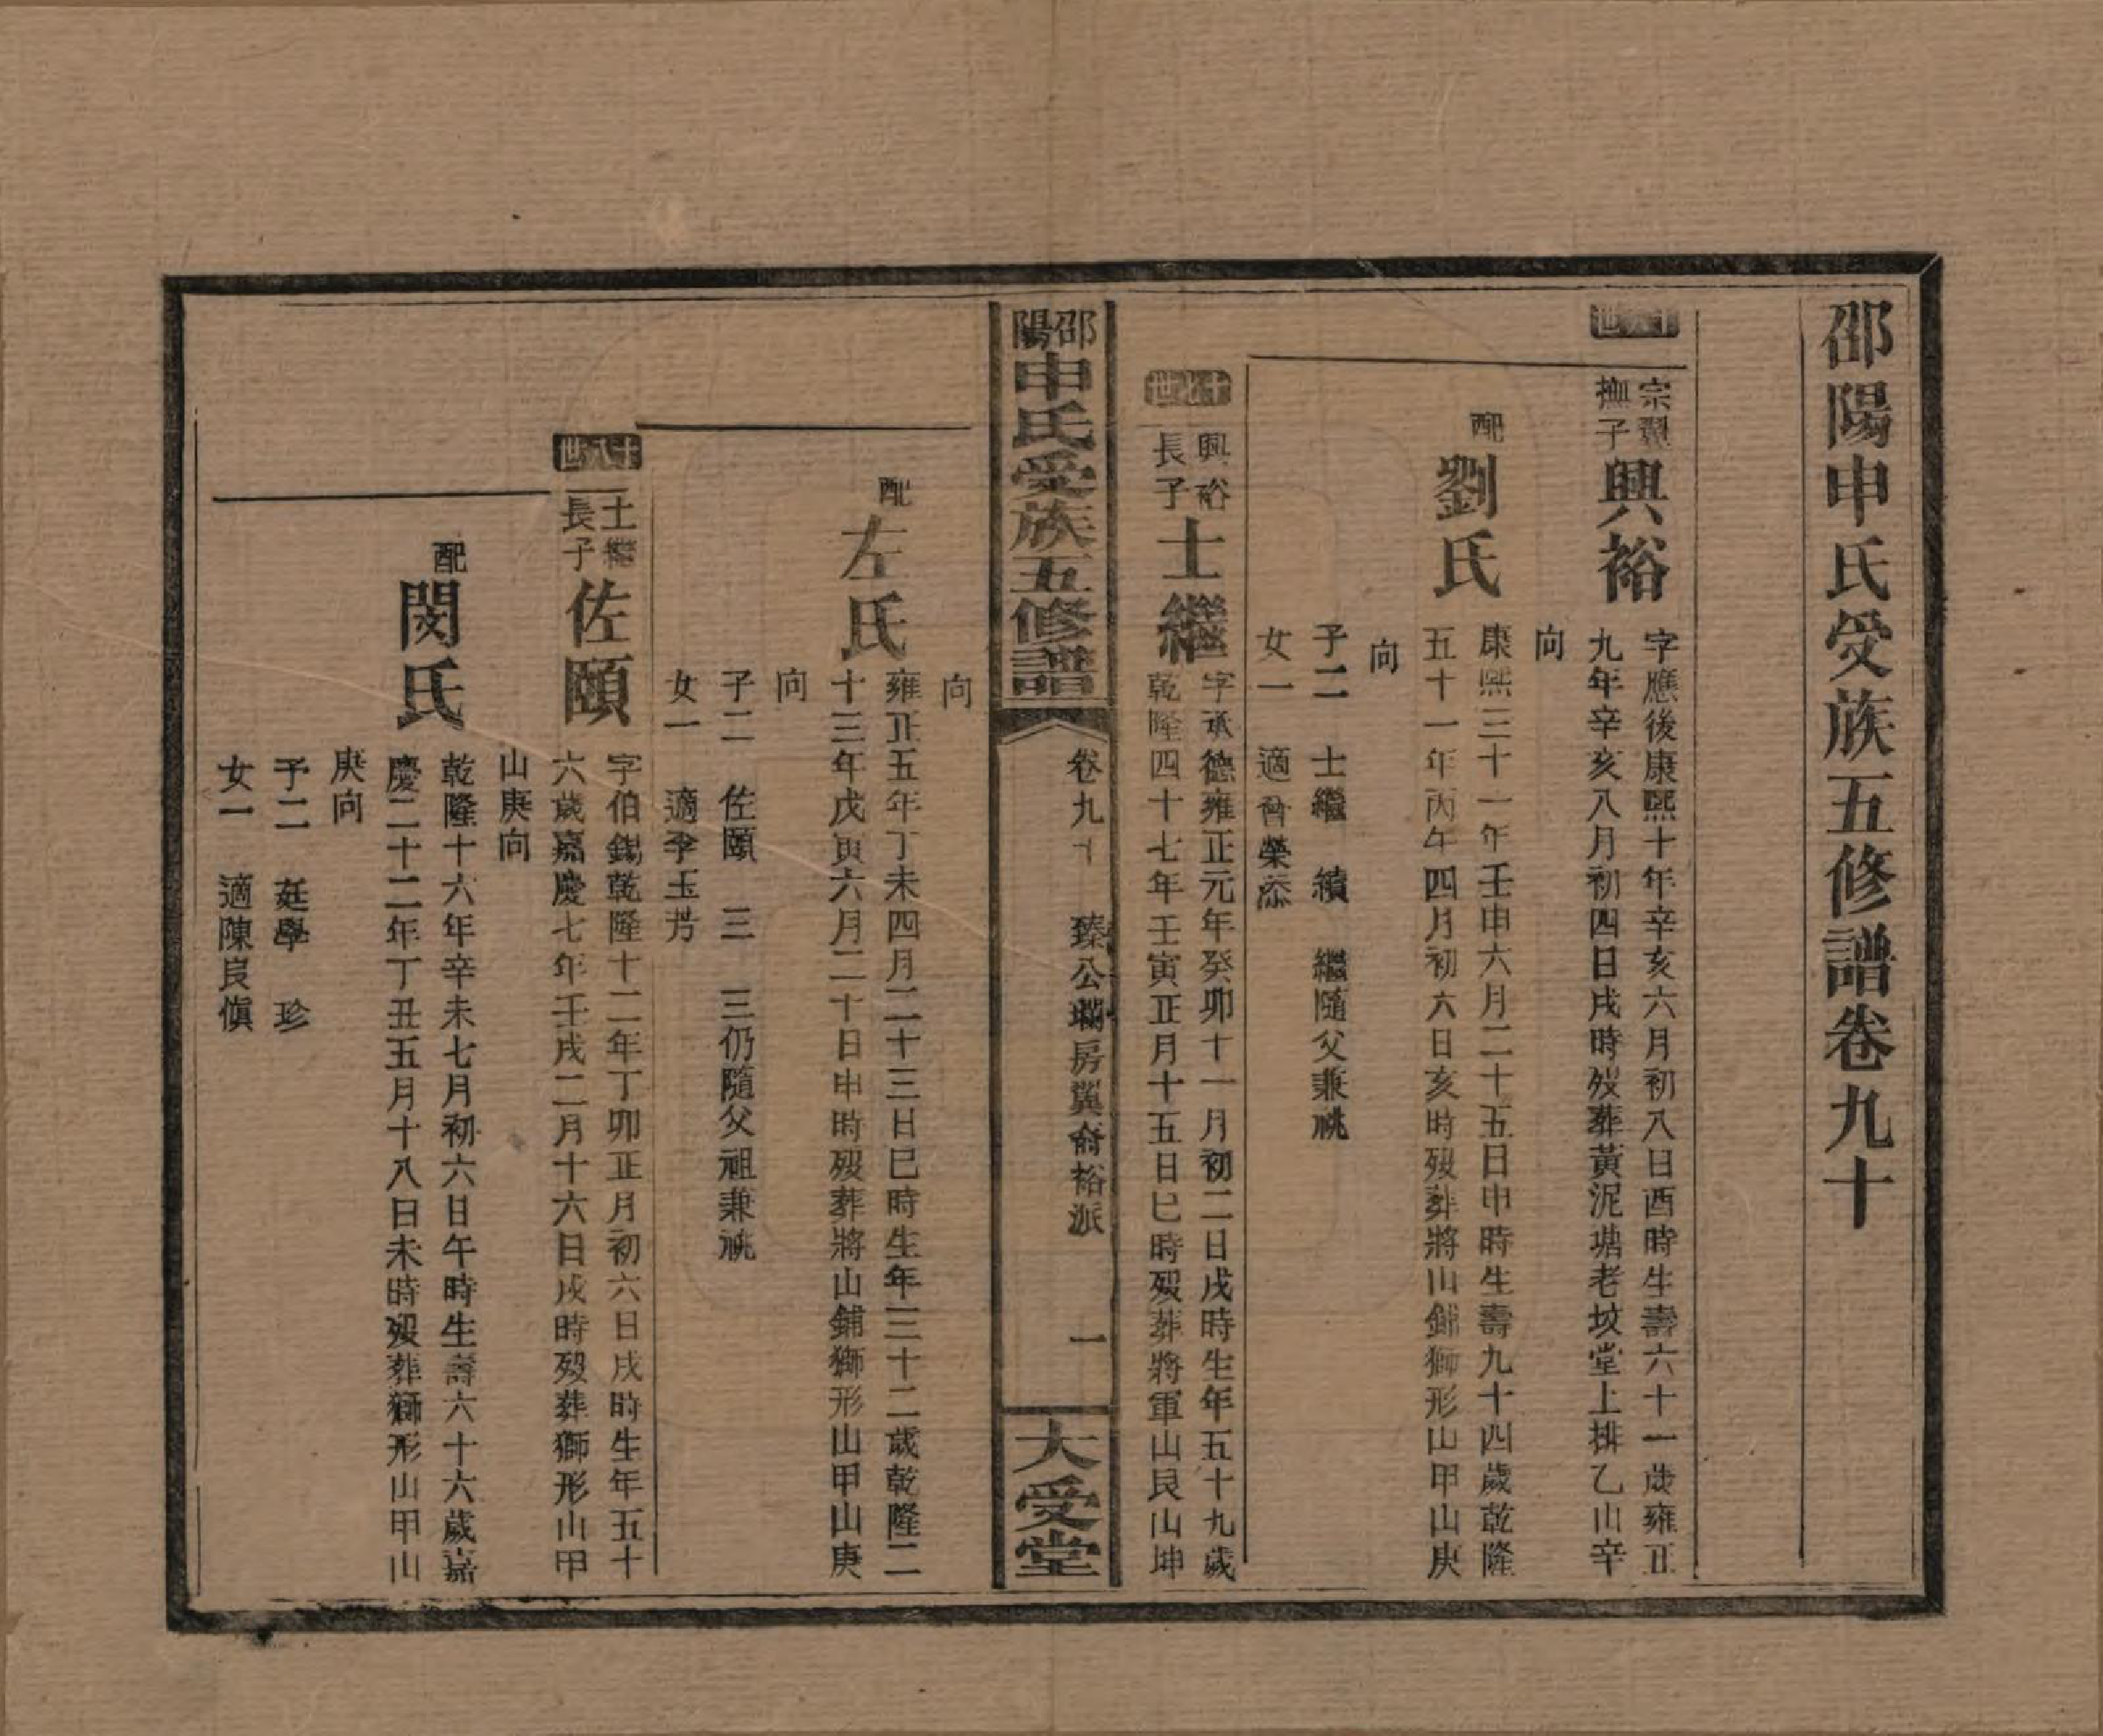 邵陽申氏受族五修譜卷九十
十六世
宗翼
撫子
興裕
字應後康熙十年辛亥六月初八日酉時生壽六十一歲雍正
九年辛亥八月初四日戌時歿葬黃泥塘老坟堂上排乙山辛
向
配
劉氏
康熙三十一年壬申六月二十五日申時生壽九十四歲乾隆
五十一年丙午四月初六日亥時歿葬將山鋪獅形山甲山庚
向
子二 士繼 續 繼隨父兼祧
女一 適曾榮添
十七世
興裕
長子
士繼
字承德雍正元年癸卯十一月初二日戌時生年五十九歲
乾隆四十七年壬寅正月十五日巳時歿葬將軍山艮山坤
邵陽申氏受族五修譜
卷九十 臻公瓓房翼裔裕派 一
大受堂
向
配
左氏
雍正五年丁未四月二十三日巳時生年三十二歲乾隆二
十三年戊寅六月二十日申時歿葬將山鋪獅形山甲山庚
向
子二 佐頤 三 三仍隨父祖兼祧
女一 適李玉芳
十八世
士繼
長子
佐頤
字伯錫乾隆十二年丁卯正月初六日戌時生年五十
六歲嘉慶七年壬戌二月十六日戌時歿葬獅形山甲
山庚向
配
閔氏
乾隆十六年辛未七月初六日午時生壽六十六歲嘉
慶二十二年丁丑五月十八日未時歿葬獅形山甲山
庚向
子二 廷學 珍
女一 適陳良慎